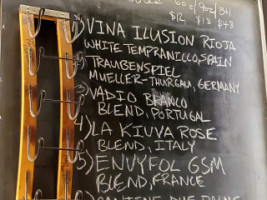 6oz / 9oz / Btl
$12 $18 $48
1) VINA ILUSION RIOJA
WHITE TEMPRANILLO, SPAIN
2) TRAUBENSPIEL
MUELLER-THURGAU, GERMANY
3) VADIO BRANCO
BLEND, PORTUGAL
4) LA KIUVA ROSE
BLEND, ITALY
5) ENVYFOL GSM
BLEND, FRANCE